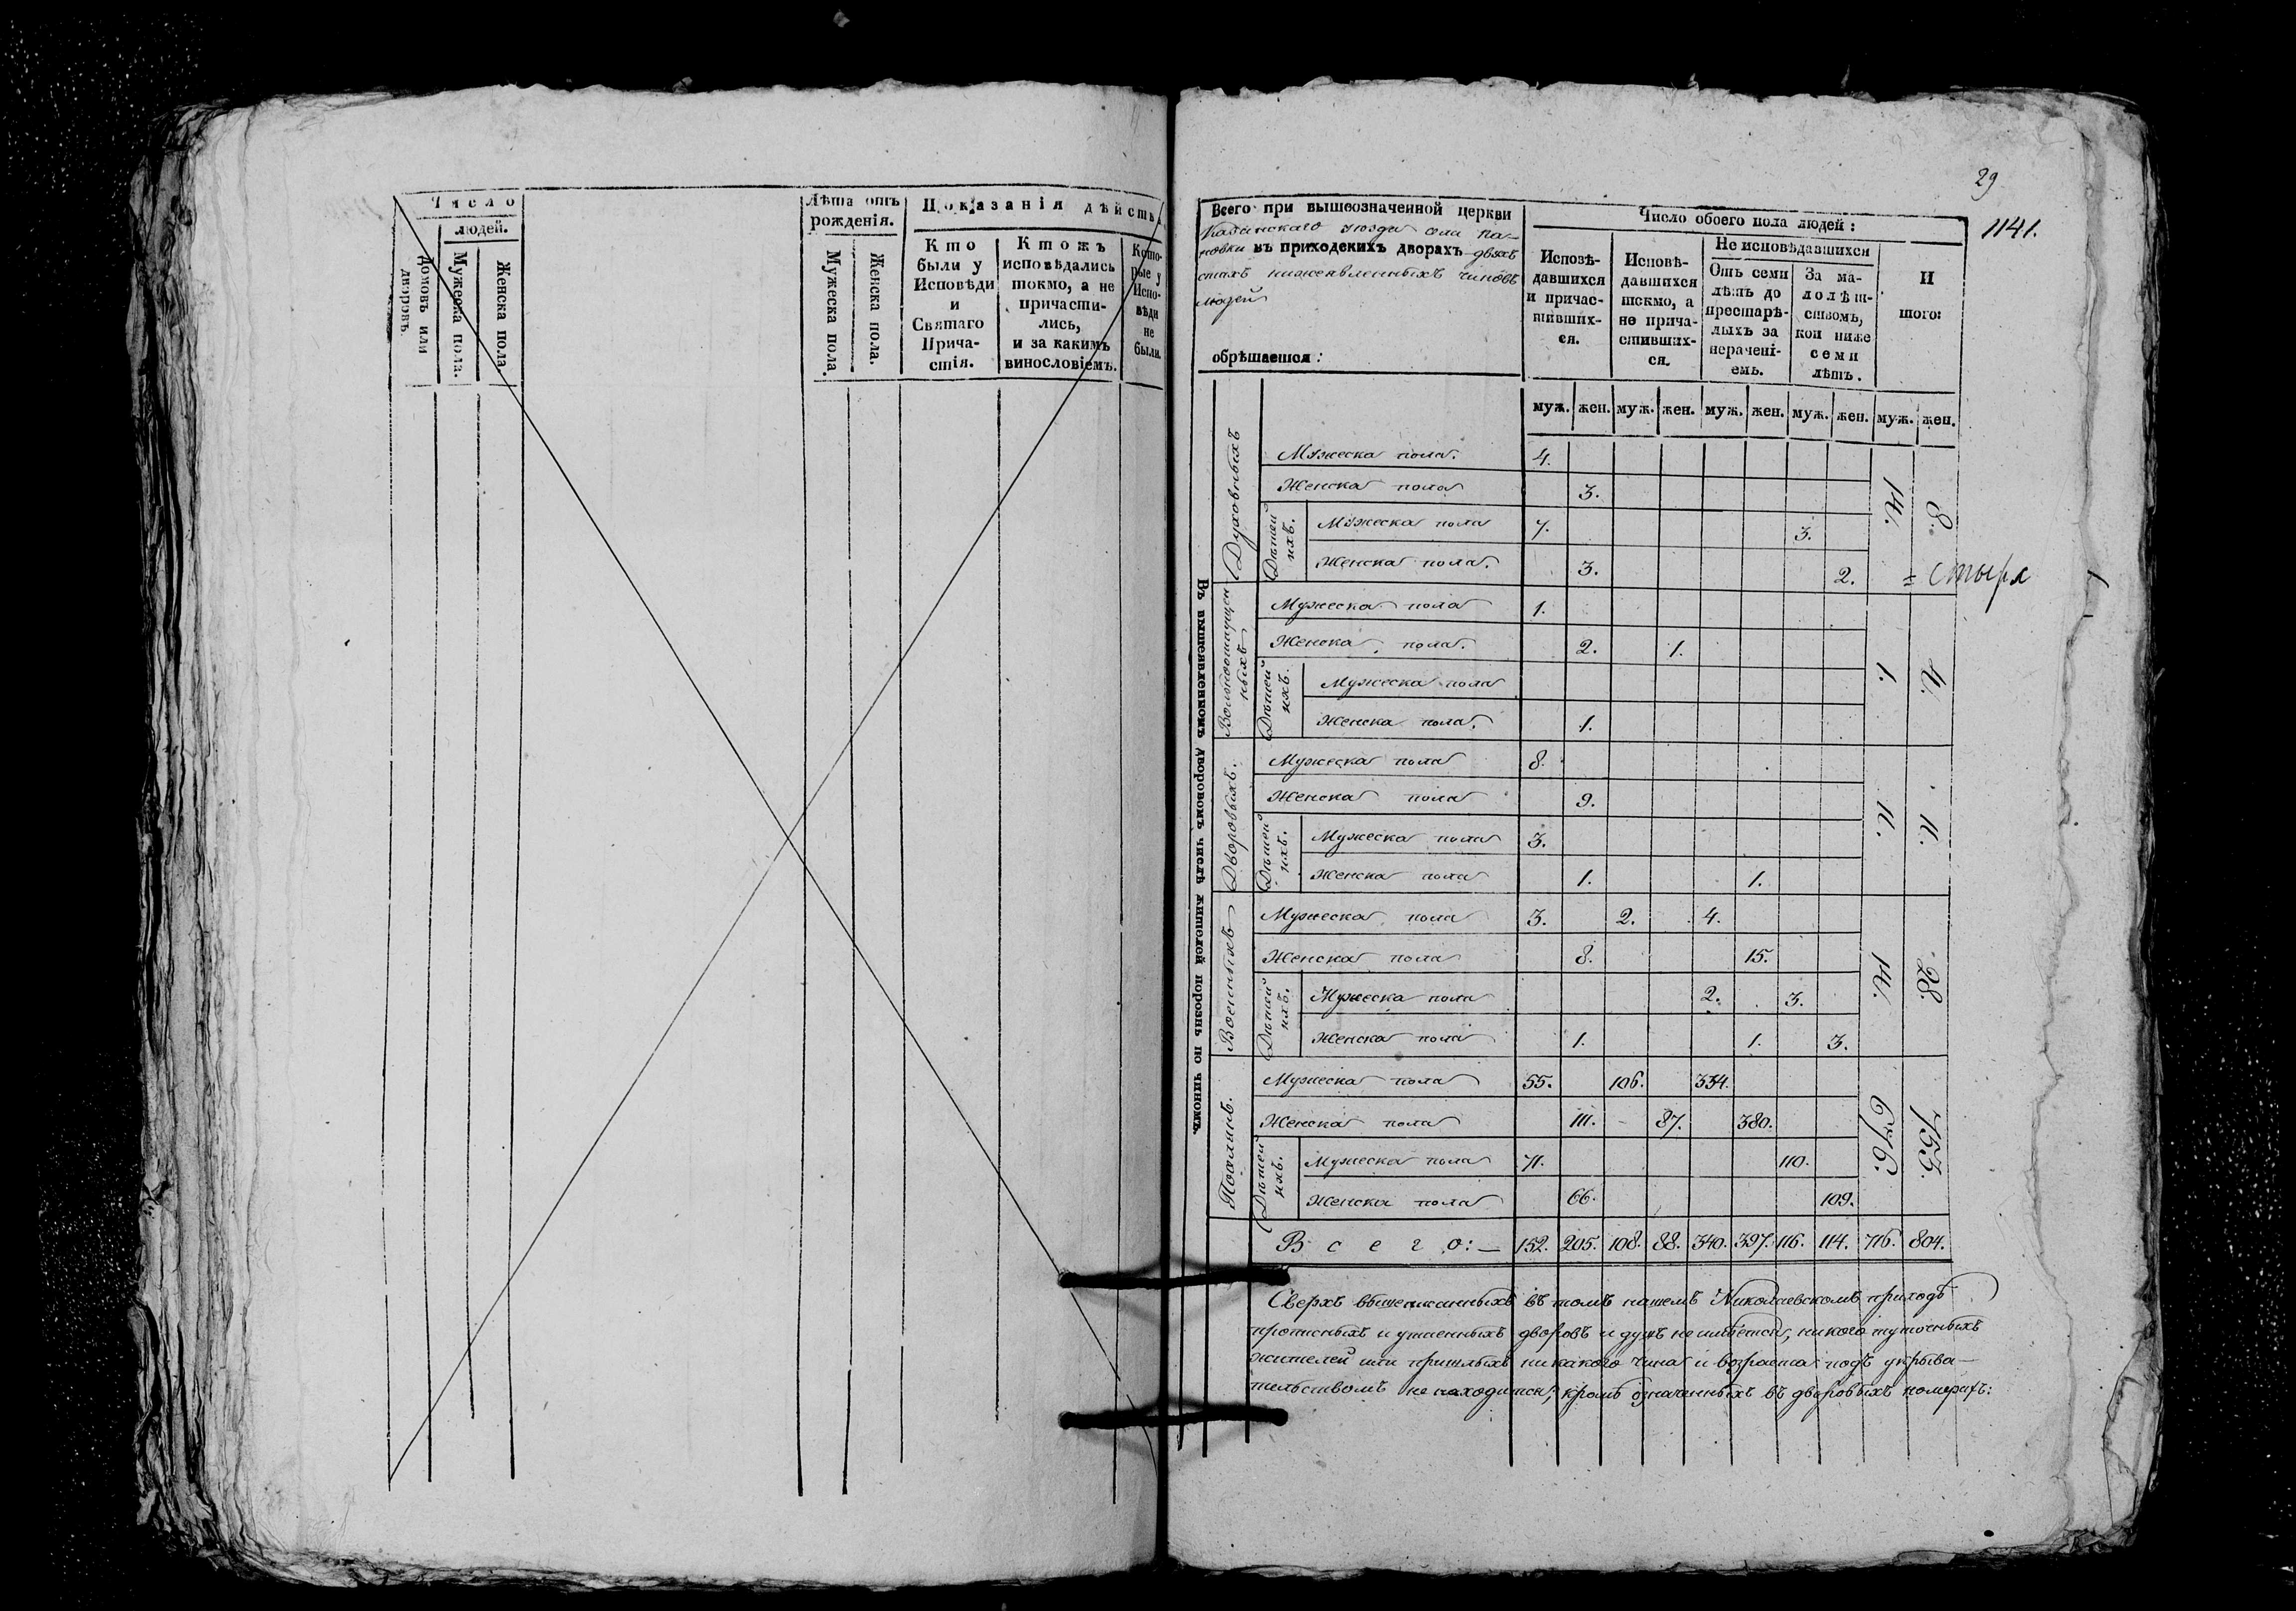 Число
людей.
Домовъ или дворовъ.
Мужеска пола.
Женска пола.
Лѣта отъ рожденія.
Мужеска пола.
Женска пола.
Показанія дѣйств
Кто были у Исповѣди и Святаго Причастія.
Ктожъ исповѣдались токмо, а не причастились, и за какимъ винословіемъ.
Которые у Исповѣди не были.
29
1141.
Всего при вышеозначенной церкви
Кадинскаго уѣзда села Па-
новки въ приходскихъ дворахъ двухъ
стахъ нижеявленныхъ чиновъ
людей
обрѣтается:
Число обоего пола людей:
Исповѣдавшихся и причастившихся.
Исповѣдавшихся токмо, а не причастившихся.
Не исповѣдавшихся
Отъ семи лѣтъ до престарѣлыхъ за нераченіемъ.
За малолѣтствомъ, кои ниже семи лѣтъ.
Итого:
муж. жен. муж. жен. муж. жен. муж. жен. муж. жен.
Въ вышеявленномъ дворовомъ числѣ жителей порознь по чиномъ.
Духовныхъ
Мужеска пола. 4.
Женска пола 3.
Дѣтей ихъ.
Мужеска пола 7. 3.
Женска пола. 3. 2.
14. 8.
Мужеска пола 1.
Женска пола. 2. 1.
Дѣтей ихъ.
Мужеска пола
Женска пола. 1.
1. 4.
Дворовыхъ.
Мужеска пола 8.
Женска пола 9.
Дѣтей ихъ.
Мужеска пола 3.
Женска пола 1. 1.
11. 11.
Военныхъ
Мужеска пола 3. 2. 4.
Женска пола 8. 15.
Дѣтей ихъ.
Мужеска пола 2. 3.
Женска пола 1. 1. 3.
14. 28.
Мужеска пола 55. 106. 334.
Женска пола 111. 87. 380.
Дѣтей ихъ.
Мужеска пола 71. 110.
Женска пола 66. 109.
676. 753.
Всего: 152. 205. 108. 88. 340. 397. 116. 114. 716. 804.
Сверхъ вышеписанныхъ въ томъ нашемъ Николаевскомъ приходѣ
прописныхъ и утаенныхъ дворовъ и душъ не имѣется, никого тутошныхъ
жителей или пришлыхъ никакого чина и возраста подъ укрыва-
тельствомъ не находится, кромѣ означенныхъ въ дворовыхъ номерахъ: